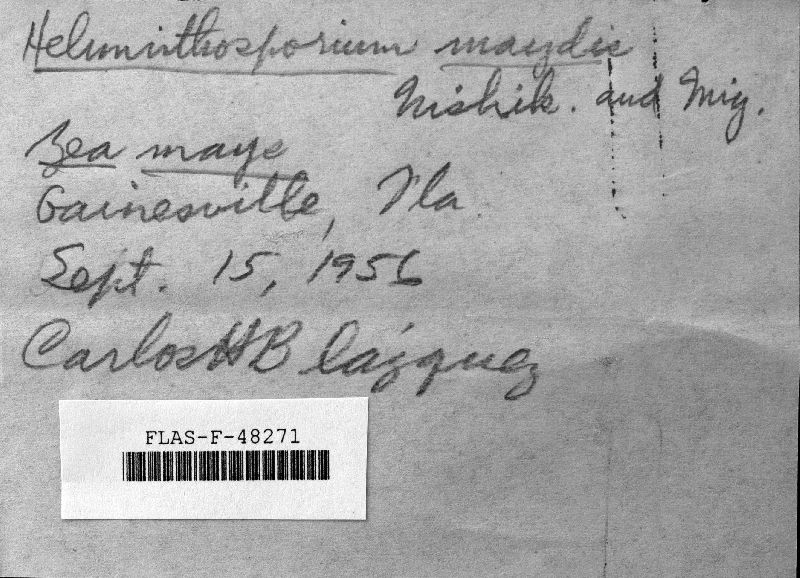 Helminthosporium maydis
Nishik. and Miy.
Zea mays
Gainesville, Fla
Sept. 15, 1956
Carlos H Blazquez
FLAS-F-48271